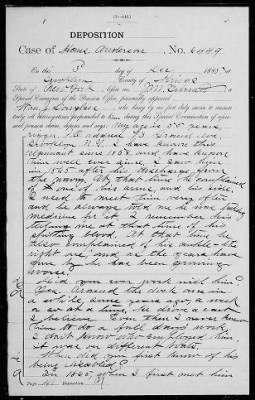 DEPOSITION
Case of Anderson, No. 6449
On this 3 day of Dec 1885, at
Brooklyn County of Kings
State of New York, before me, 
Special Examiner of the Pension Office, personally appeared
Wm. J. Douglas who, being by me first duly sworn to answer
truly all interrogatories propounded to him during this Special Examination of afore-
said pension claim, deposes and says: My age is 50 years
P.O. address
Brooklyn N.Y. I have known this
claimant since 1858 and have known
him well ever since. I saw him
in 1865 after his discharge from
the Navy. At that time he complained
of one of his arms, and his side.
I used to meet him very often
and he always told me he was taking
medicine for it. I remember his
telling me at that time of his
spitting blood. At that time he
also complained of his ankle - the
right one, and as the years have
gone by he has been growing
worse.
Did you ever work with him?
Around the docks once in
a while, some years ago, a week
or so at a time. He drove a cart
I believe. Even then I never knew
him to do a full day's work.
I don't know who employed him
it was on different boats.
When did you first know of his
being disabled?
In 1865, when I first met him
Page Deposition